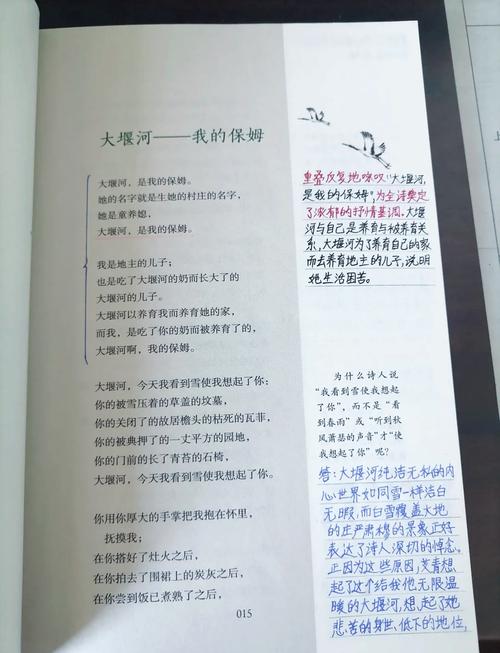 大堰河——我的保姆
大堰河，是我的保姆。
她的名字就是生她的村庄的名字，
她是童养媳，
大堰河，是我的保姆。
我是地主的儿子；
也是吃了大堰河的奶而长大了的
大堰河的儿子。
大堰河以养育我而养育她的家，
而我，是吃了你的奶而被养育了的，
大堰河啊，我的保姆。
大堰河，今天我看到雪使我想起了你：
你的被雪压着的草盖的坟墓，
你的关闭了的故居檐头的枯死的瓦菲，
你的被典押了的一丈平方的园地，
你的门前的长了青苔的石椅，
大堰河，今天我看到雪使我想起了你。
你用你厚大的手掌把我抱在怀里，
抚摸我；
在你搭好了灶火之后，
在你拍去了围裙上的炭灰之后，
在你尝到饭已煮熟了之后，
015
重叠反复地咏叹"大堰河，
是我的保姆"，为全诗奠定
了浓郁的抒情基调。大堰
河与自己是养育与被养育关
系，大堰河为了养育自己的家
而去养育地主的儿子，说明
她生活困苦。
为什么诗人说
"我看到雪使我想起
了你"，而不是"看
到春雨"或"听到秋
风萧瑟的声音"才"使
我想起了你"呢？
答：大堰河纯洁无私的内
心世界如同雪一样洁白
无暇，而白雪覆盖大地
的庄严肃穆的景象正好
表达了诗人深切的悼念。
正因为这些原因，艾青想
起了这个给我他无限温
暖的大堰河，想起了她
悲苦的身世、低下的地位，